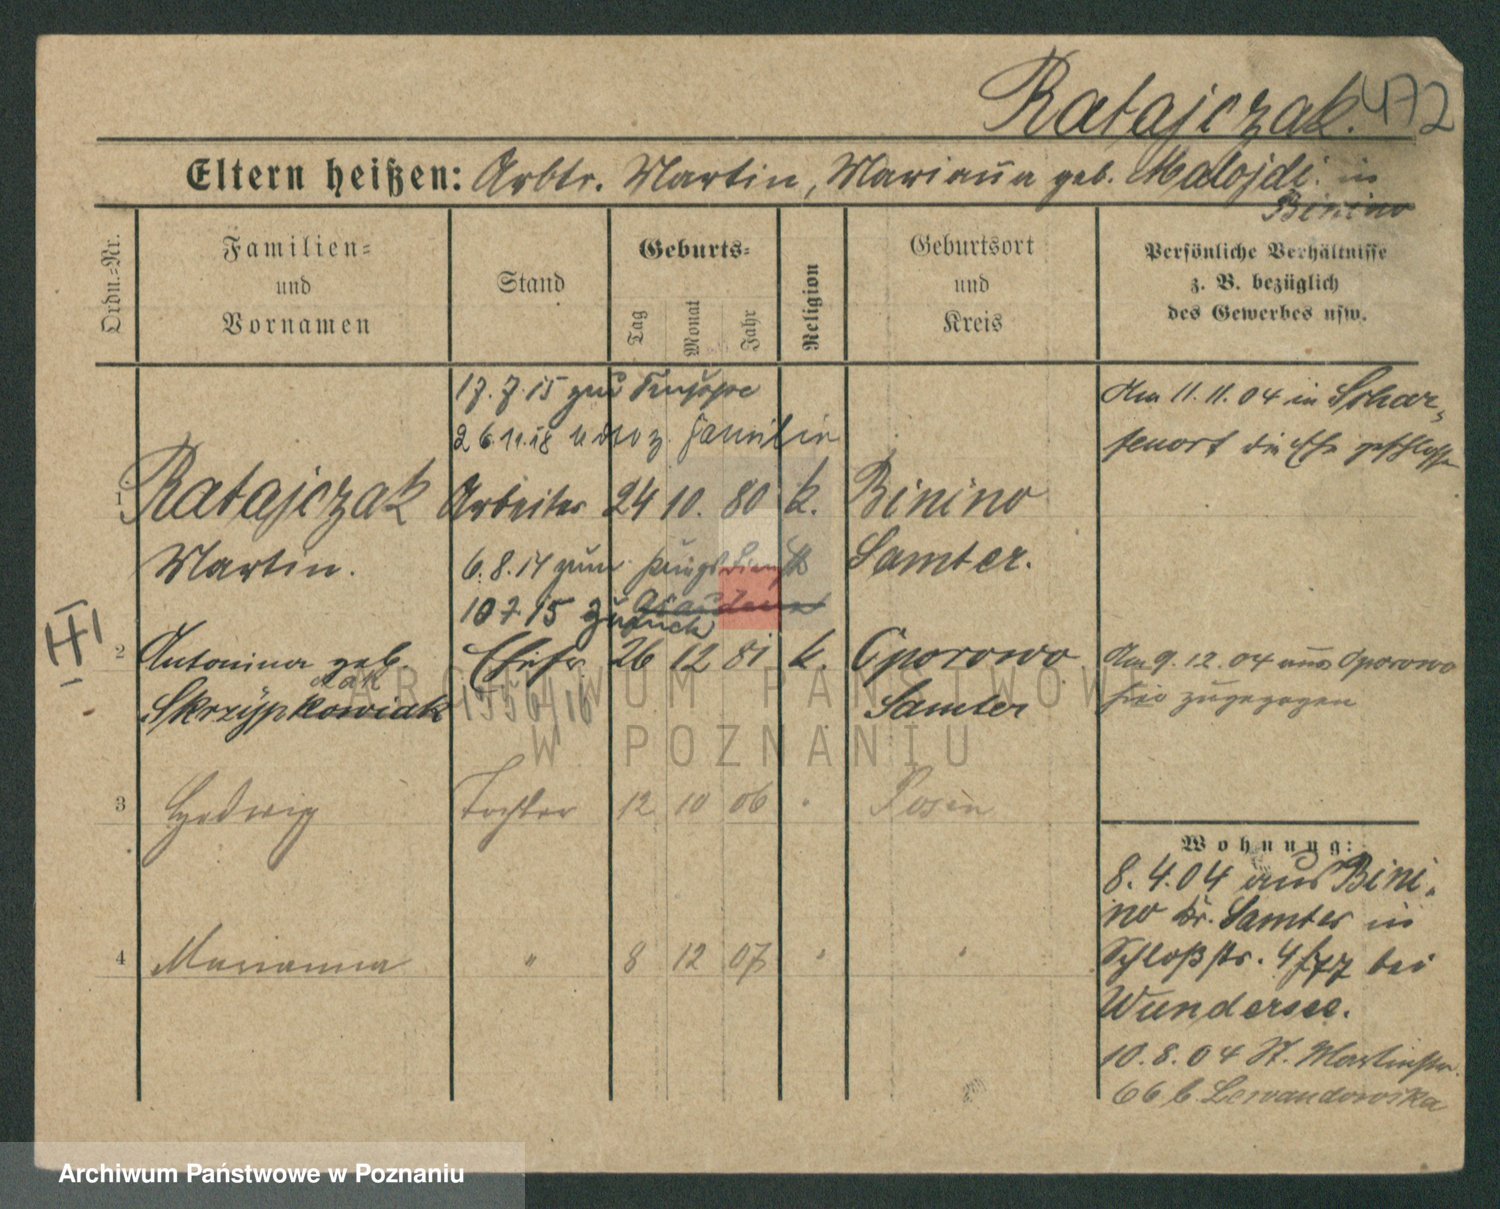 Ratajczak. 472
Eltern heißen: Arbtr. Martin, Marianna geb. Matojdi. in
Binino
Ordn.-Nr.
Familien-
und
Vornamen
Stand
Geburts-
Tag
Monat
Jahr
Religion
Geburtsort
und
Kreis
Persönliche Verhältnisse
z. B. bezüglich
des Gewerbes usw.
17.7.15 zur Truppe
26.11.18 z. Familie
Am 11.11.04 in Schar-
fenort die Ehe geschlossen
1 Ratajczak Arbeiter 24 10. 80 k. Binino
Martin. 6.8.14 zum Kriegsdienst Samter.
10 7 15 zurück
III
2 Antonina geb. Ehefr. 26 12 81 k. Oporowo Am 9.12.04 aus Oporowo
Skrzypkowiak 1556/16 Samter hier zugezogen
czak
3 Hedwig Tochter 12 10 06 " Posen
4 Marianna " 8 12 07 " "
Wohnung:
8.4.04 aus Bini-
no Kr. Samter in
Schloßstr. 4 bei
Wundersee.
10.8.04 St. Martinstr.
66 b. Lewandowska
ARCHIWUM PAŃSTWOWE
W POZNANIU
Archiwum Państwowe w Poznaniu